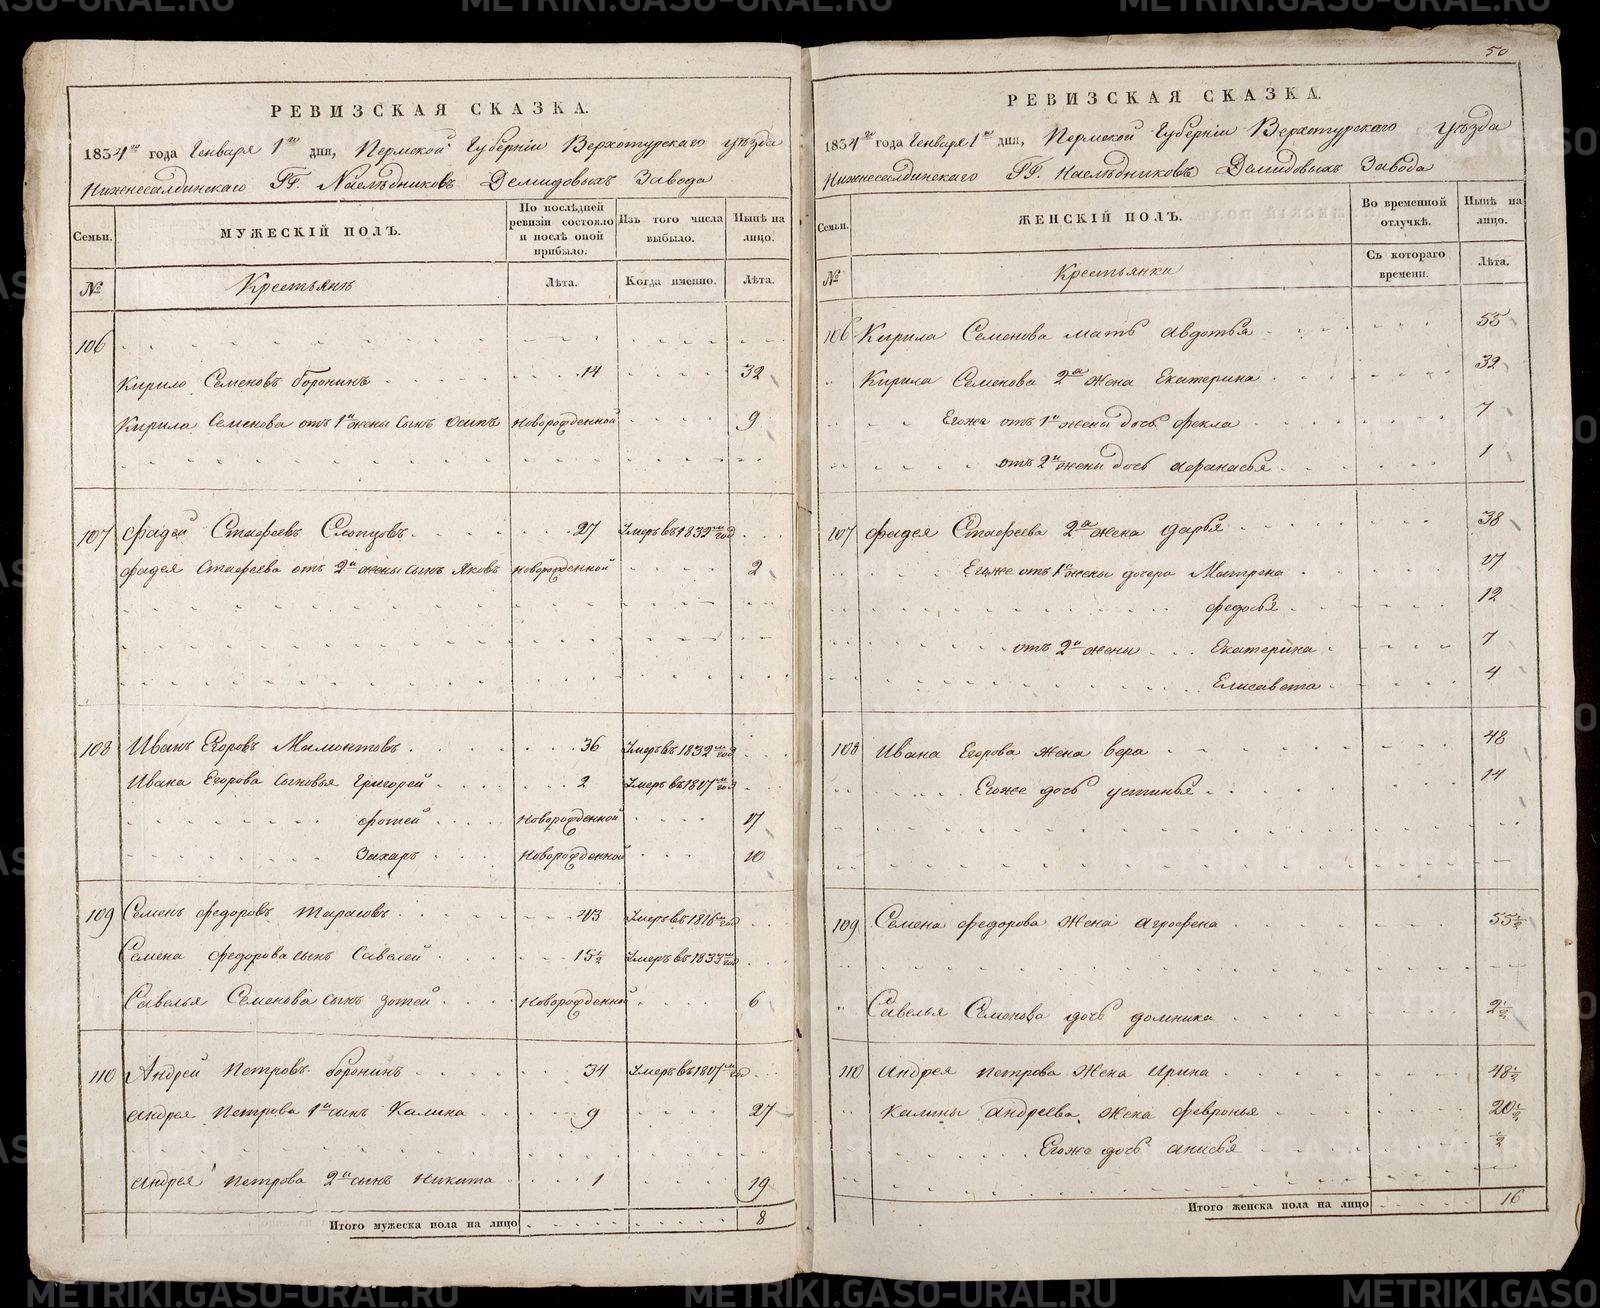 50
РЕВИЗСКАЯ СКАЗКА.
1834го года Генваря 1го дня, Пермской Губернiи Верхотурскаго уѣзда
Нижнесалдинскаго ГГ. Наслѣдниковъ Демидовыхъ Завода
Семьи. МУЖЕСКIЙ ПОЛЪ. По послѣдней ревизiи состояло и послѣ оной прибыло. Изъ того числа выбыло. Нынѣ на лицо.
№ Крестьянъ Лѣта. Когда именно. Лѣта.
106
Кирило Семеновъ Боронинъ 14 32
Кирила Семенова отъ 1й жены сынъ Осипъ новорожденной 9
107 Фадей Стафеевъ Слопцовъ 27 Умеръ въ 1832м год
Фадея Стафеева отъ 2й жены сынъ Яковъ новорожденной 2
108 Иванъ Егоровъ Мамонтовъ 36 Умеръ въ 1832м год
Ивана Егорова сыновья Григорей 2 Умеръ въ 1817м год
Фотей Новорожденной 17
Захаръ Новорожденной 10
109 Семенъ Федоровъ Тарасовъ 43 Умеръ въ 1816м год
Семена Федорова сынъ Савелей 15½ Умеръ въ 1833м год
Савелья Семенова сынъ Зотей Новорожденной 6
110 Андрей Петровъ Боронинъ 34 Умеръ въ 1817м год
Андрея Петрова 1й сынъ Калина 9 27
Андрея Петрова 2й сынъ Никита 1 19
Итого мужеска пола на лицо 8
РЕВИЗСКАЯ СКАЗКА.
1834го года Генваря 1го дня, Пермской Губернiи Верхотурскаго уѣзда
Нижнесалдинскаго ГГ. Наслѣдниковъ Демидовыхъ Завода
Семьи. ЖЕНСКIЙ ПОЛЪ. Во временной отлучкѣ. Нынѣ на лицо.
№ Крестьянки Съ котораго времени. Лѣта.
106 Кирила Семенова мать Авдотья 55
Кирила Семенова 2я жена Екатерина 32
Егоже отъ 1й жены дочь Фекла 7
отъ 2й жены дочь Афанасья 1
107 Фадея Стафеева 2я жена Дарья 38
Егоже отъ 1й жены дочери Матрена 17
Федосья 12
отъ 2й жены Екатерина 7
Елисавета 4
108 Ивана Егорова жена Вера 48
Егоже дочь Устинья 14
109 Семена Федорова жена Агрофена 55½
Савелья Семенова дочь Домника 2½
110 Андрея Петрова жена Ирина 48½
Калины Андреева жена Февронья 20½
Егоже дочь Анисья ½
Итого женска пола на лицо 16
METRIKI.GASO-URAL.RU